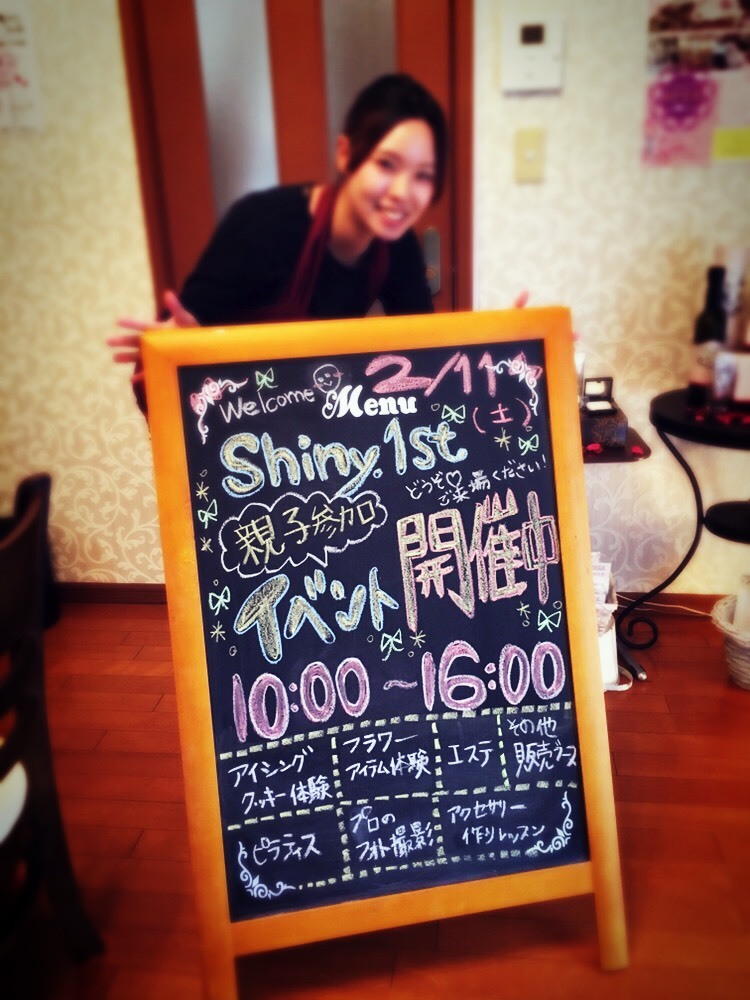 Welcome
Menu
2/11
(土)
Shiny.1st
どうぞ♡
ご来場ください!
親子参加
イベント
開催中
10:00～16:00
アイシング
クッキー体験
フラワー
アイテム体験
エステ
その他
販売ブース
ピラティス
プロの
フォト撮影
アクセサリー
作りレッスン